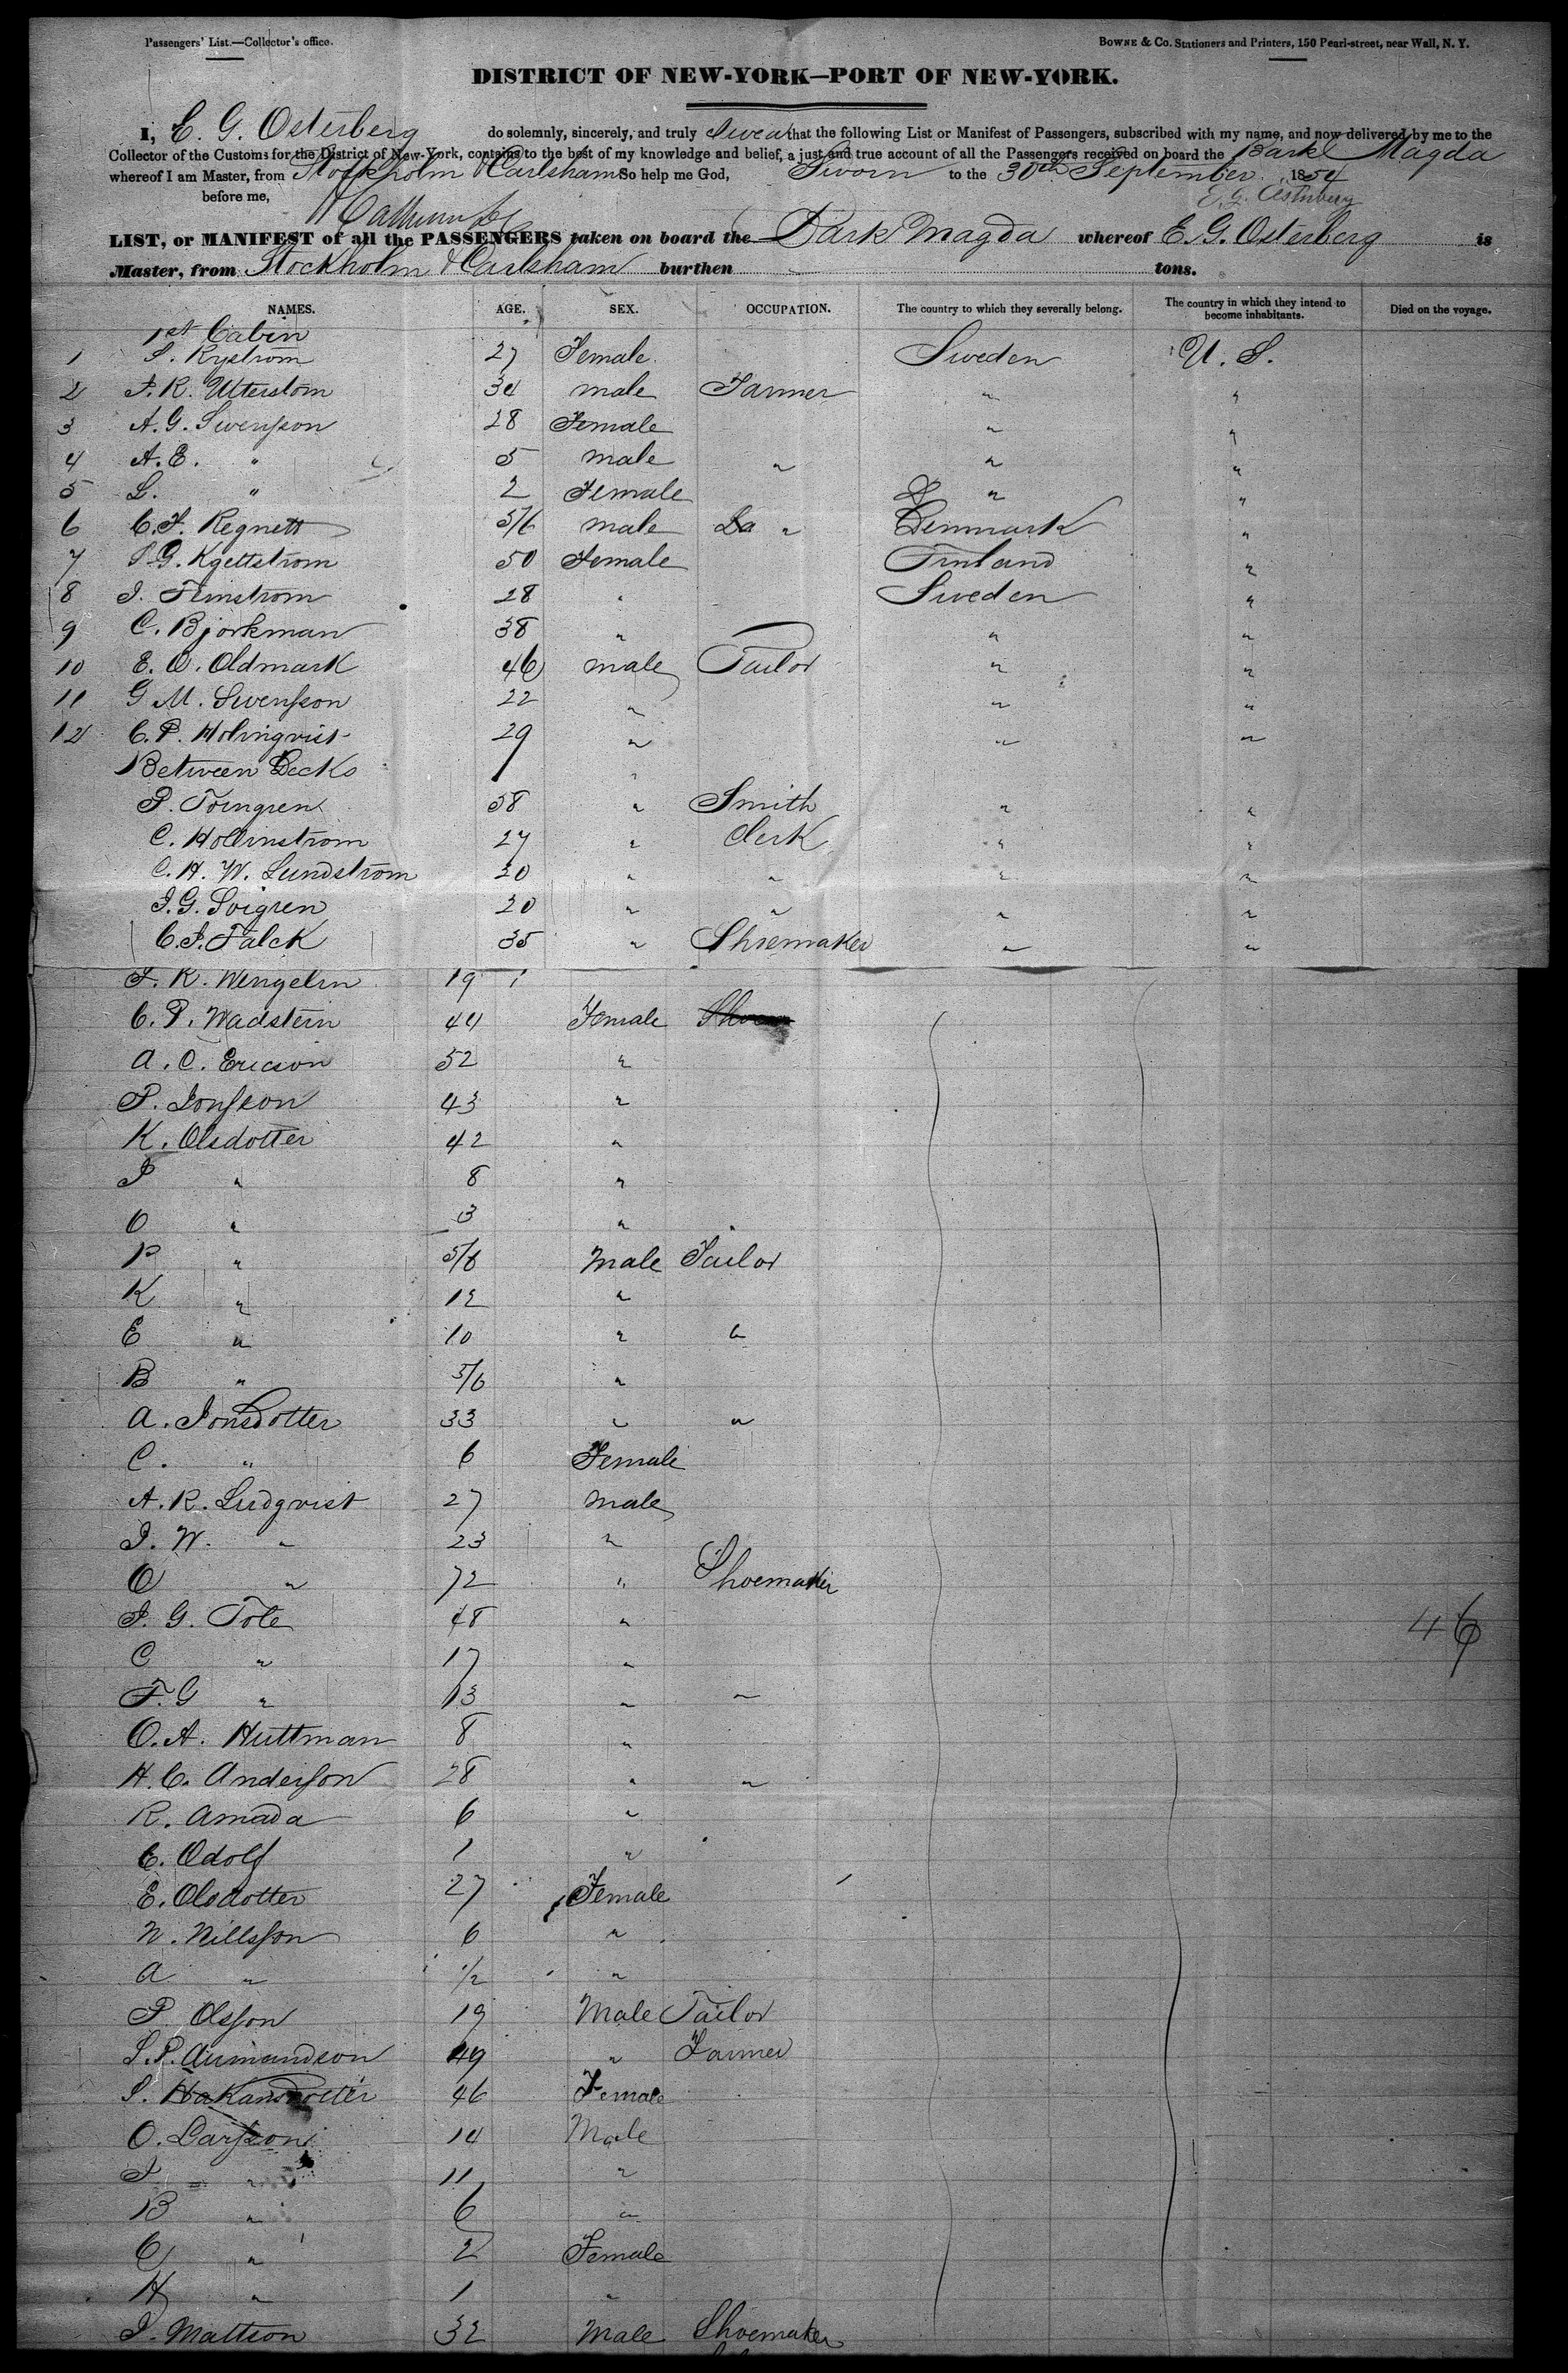 Passengers' List.—Collector's office.
BOWNE & Co. Stationers and Printers, 150 Pearl-street, near Wall, N. Y.
DISTRICT OF NEW-YORK—PORT OF NEW-YORK.
I, E. G. Osterberg do solemnly, sincerely, and truly Swear that the following List or Manifest of Passengers, subscribed with my name, and now delivered by me to the
Collector of the Customs for the District of New-York, contains to the best of my knowledge and belief, a just and true account of all the Passengers received on board the Bark Magda
whereof I am Master, from Stockholm & Carlsham So help me God, Sworn to the 30th September 1854
before me, E. G. Osterberg
LIST, or MANIFEST of all the PASSENGERS taken on board the Bark Magda whereof E. G. Osterberg is
Master, from Stockholm & Carlsham burthen tons.
NAMES. AGE. SEX. OCCUPATION. The country to which they severally belong. The country in which they intend to become inhabitants. Died on the voyage.
1st Cabin
1 S. Rystrom 27 Female Sweden U. S.
2 F. R. Utterstom 34 male Farmer " "
3 A. G. Swensson 28 Female " "
4 A. E. " 5 male " " "
5 L. " 2 Female " "
6 C. F. Regnett 5/6 male " Denmark "
7 S. G. Kgettstrom 50 Female Finland "
8 I. Finstrom 28 " Sweden "
9 C. Bjorkman 38 " " "
10 E. O. Oldmark 46 male Tailor " "
11 G M. Swensson 22 " " "
12 C. P. Holmqvist 29 " " "
Between Decks "
P. Torngren 58 " Smith " "
C. Hollmstrom 27 " Clerk " "
C. H. W. Lundstrom 20 " " " "
I. G. Soigren 20 " " " "
C. F. Falck 35 " Shoemaker " "
F. R. Wengelin 19
C. P. Wadstein 44 Female
A. C. Ericson 52 "
P. Jonsson 43 "
K. Olsdotter 42 "
P " 8 "
O " 3 "
P " 5/6 Male Tailor
K " 12 "
E " 10 " "
B " 5/6 "
A. Jonsdotter 33 " "
C. " 6 Female
A. R. Ludqvist 27 male
I. W. " 23 "
O " 72 " Shoemaker
I. G. Tole 48 "
46
C " 17 "
F. G " 13 " "
O. A. Huttman 8 "
H. C. Anderson 28 " "
R. Amada 6 "
C. Odolf 1 "
E. Olsdotter 27 Female
N. Nillsson 6 "
A " 1/2 "
P. Olsson 19 Male Tailor
S. P. Aumandson 49 " Farmer
S. Hakansdotter 46 Female
O. Larsson 14 Male
I " 11 "
B " 6 "
C " 2 Female
H " 1 "
I. Mattson 32 Male Shoemaker